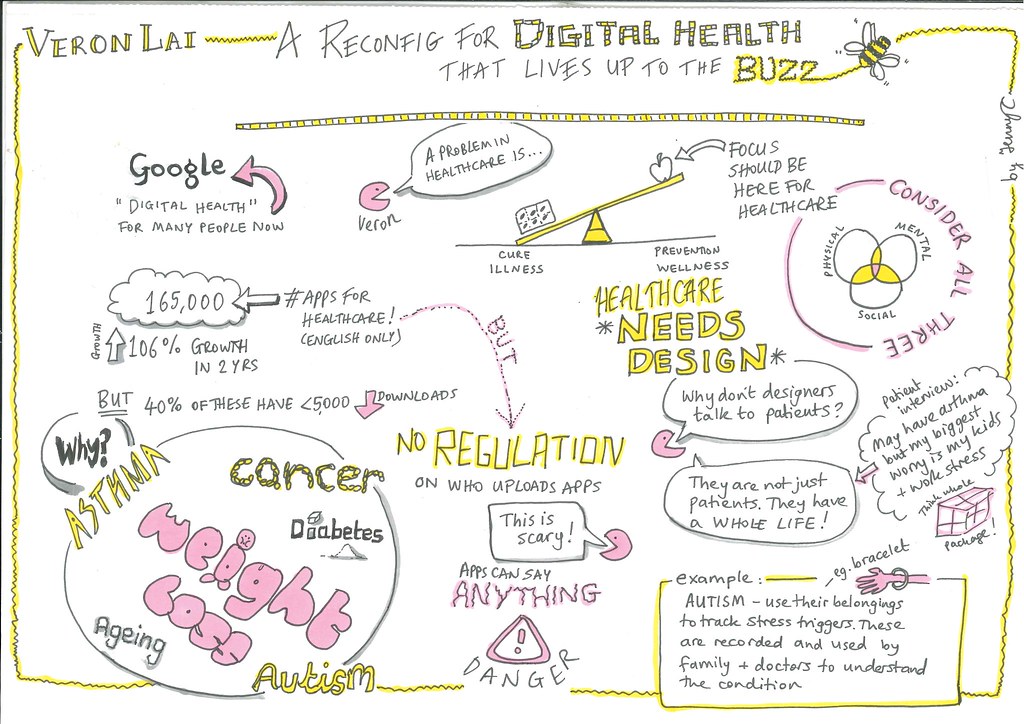 VERON LAI
A RECONFIG FOR DIGITAL HEALTH
THAT LIVES UP TO THE BUZZ
Google
"DIGITAL HEALTH"
FOR MANY PEOPLE NOW
A PROBLEM IN
HEALTHCARE IS...
Veron
CURE
ILLNESS
PREVENTION
WELLNESS
FOCUS
SHOULD BE
HERE FOR
HEALTHCARE
CONSIDER ALL THREE
PHYSICAL
MENTAL
SOCIAL
165,000
# APPS FOR
HEALTHCARE!
(ENGLISH ONLY)
GROWTH
106% GROWTH
IN 2 YRS
BUT
40% OF THESE HAVE <5,000
DOWNLOADS
BUT
HEALTHCARE
*NEEDS
DESIGN*
Why don't designers
talk to patients?
They are not just
patients. They have
a WHOLE LIFE!
patient
interview:
may have asthma
but my biggest
worry is my kids
+ work stress
Think whole
package!
Why?
ASTHMA
cancer
Diabetes
weight
loss
Ageing
Autism
NO REGULATION
ON WHO UPLOADS APPS
This is
scary!
APPS CAN SAY
ANYTHING
!
DANGER
example:
eg. bracelet
AUTISM - use their belongings
to track stress triggers. These
are recorded and used by
family + doctors to understand
the condition